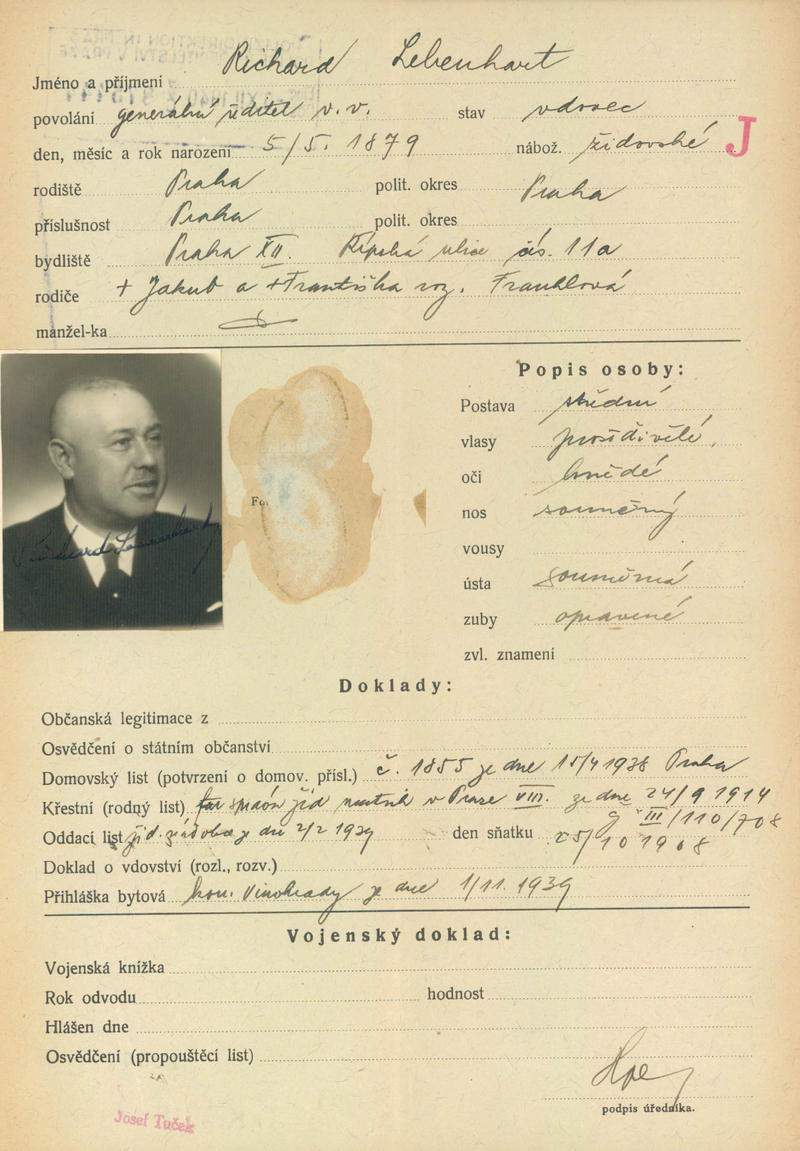 Jméno a příjmení Richard Lebenhart
povolání generální ředitel v.v. stav vdovec
den, měsíc a rok narození 5/5. 1879 nábož. židovské J
rodiště Praha polit. okres Praha
příslušnost Praha polit. okres
bydliště Praha XII. Řípská ulice čís. 11a
rodiče + Jakub a + Františka roz. Franklová
manžel-ka
Popis osoby:
Postava střední
vlasy prošedivělé,
oči hnědé
nos souměrný
vousy
ústa souměrná
zuby opravené
zvl. znamení
Fo
Richard Lebenhart
Doklady:
Občanská legitimace z
Osvědčení o státním občanství
Domovský list (potvrzení o domov. přísl.) č. 1855 ze dne 15/4 1938 Praha
Křestní (rodný list) žid v Praze VIII. ze dne 24/9 1914
Oddací list žid. dne 2/2 1939 den sňatku 25/10 1908 III/110/708
Doklad o vdovství (rozl., rozv.)
Přihláška bytová kom. Vinohrady ze dne 1/11. 1939
Vojenský doklad:
Vojenská knížka
Rok odvodu hodnost
Hlášen dne
Osvědčení (propouštěcí list)
podpis úředníka.
Josef Tuček